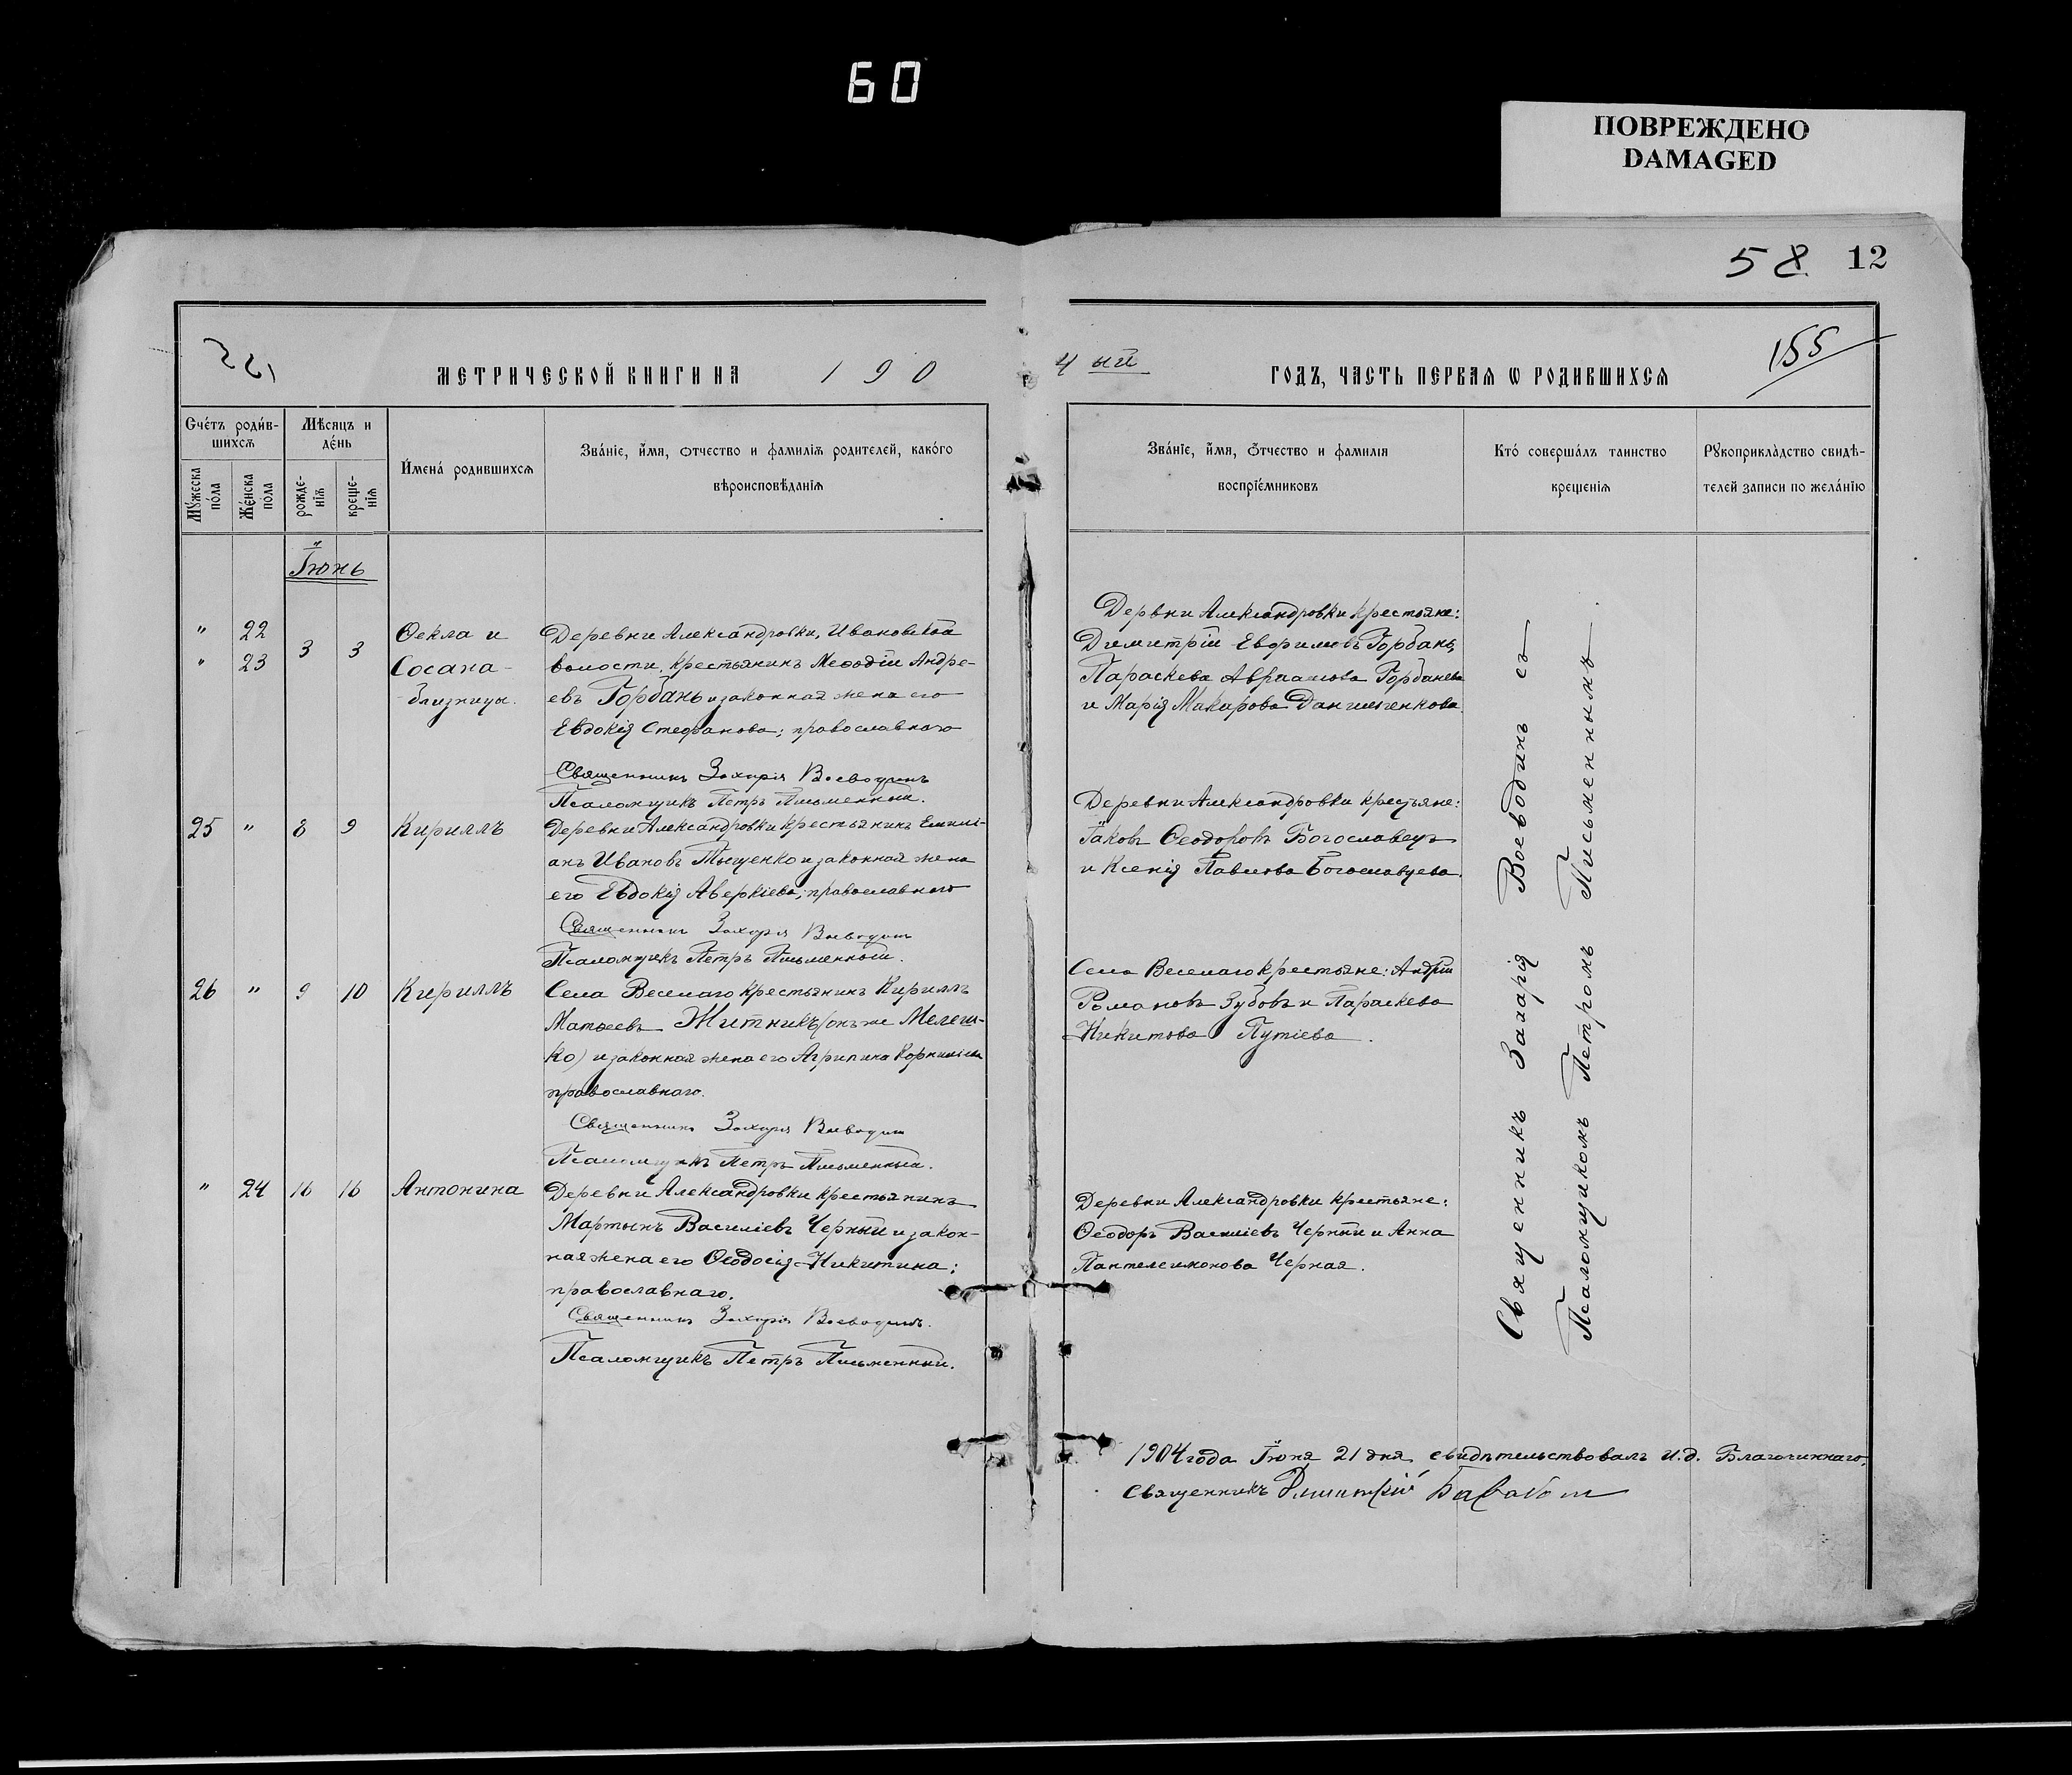 60
ПОВРЕЖДЕНО
DAMAGED
58 12
155
МЕТРИЧЕСКОЙ КНИГИ НА 190
4 ый ГОДЪ, ЧАСТЬ ПЕРВАЯ Ѡ РОДИВШИХСЯ
Счетъ родив-
шихся
Мѣсяцъ и
день
Мужеска
пола
Женска
пола
рожде-
нія
креще-
нія
Имена родившихся
Званіе, имя, отчество и фамилія родителей, какого
вѣроисповѣданія
Званіе, имя, отчество и фамилія
воспріемниковъ
Кто совершалъ таинство
крещенія
Рукоприкладство свидѣ-
телей записи по желанію
Іюнь
" 22 3 3 Ѳекла и
" 23 Сосана-
близницы.
Деревни Александровки, Ивановской
волости, крестьянинъ Меѳодій Андре-
евъ Горбань и законная жена его
Евдокія Стефанова; православнаго
Священникъ Захарія Воеводинъ
Псаломщикъ Петръ Письменный.
Дервни Александровки крестьяне:
Димитрій Евфимовъ Горбань,
Параскева Авраамова Горбанева
и Марія Макарова Данильченкова.
25 " 8 9 Кириллъ
Деревни Александровки крестьянинъ Емили-
анъ Ивановъ Тыщенко и законная жена
его Евдокія Аверкіева; православнаго
Священникъ Захарія Воеводинъ
Псаломщикъ Петръ Письменный.
Деревни Александровки крестьяне:
Іаковъ Ѳеодоровъ Богославецъ
и Ксенія Павлова Богославцева.
26 " 9 10 Кириллъ
Села Веселаго крестьянинъ Кириллъ
Матѳеевъ Житникъ (онъ же Мелеш-
ко) и законная жена его Агрипина Корниліева
православнаго.
Священникъ Захарія Воеводинъ
Псаломщикъ Петръ Письменный.
Села Веселаго крестьяне: Андрей
Романовъ Зубовъ и Параскева
Никитова Путіева.
" 24 16 16 Антонина
Деревни Александровки крестьянинъ
Мартынъ Василіевъ Черный и закон-
ная жена его Ѳеодосія Никитина;
православнаго.
Священникъ Захарія Воеводинъ.
Псаломщикъ Петръ Письменный.
Деревни Александровки крестьяне:
Ѳеодоръ Василіевъ Черный и Анна
Пантелеимонова Черная.
Священникъ Захарія Воеводинъ съ
Псаломщикомъ Петромъ Письменнымъ
1904 года Іюня 21 дня свидѣтельствовалъ и.д. Благочиннаго,
Священникъ Димитрій